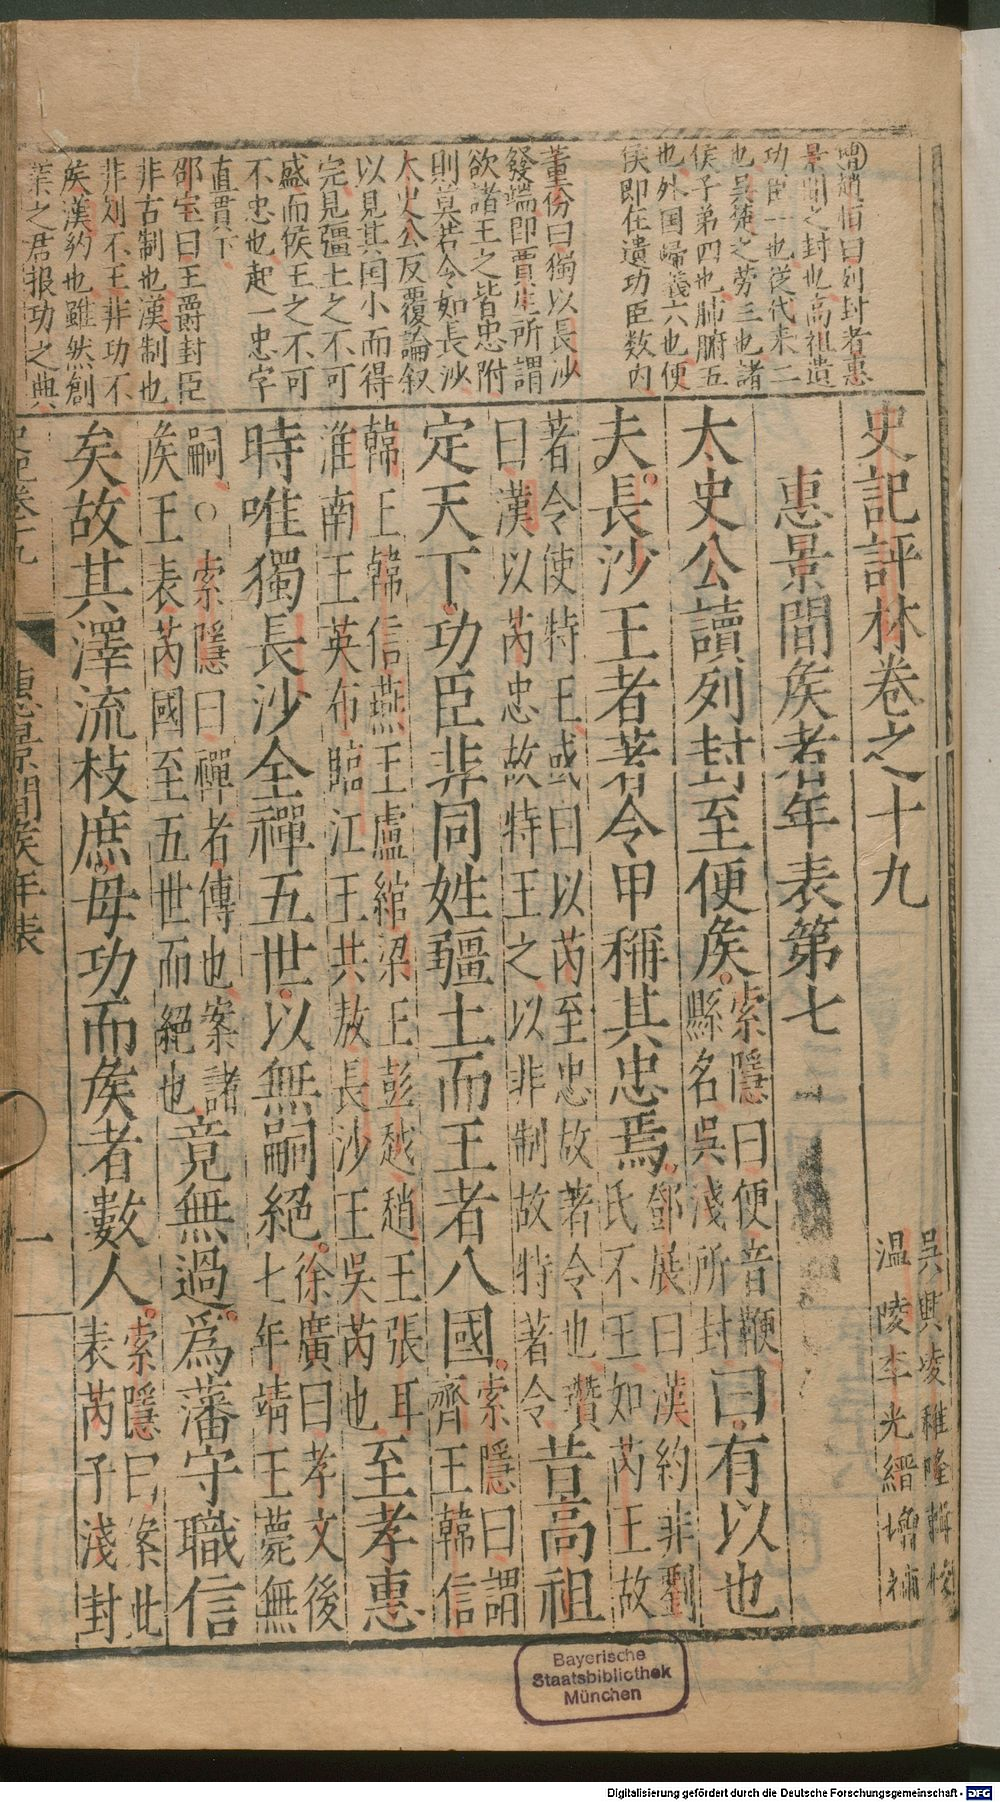 增趙恒曰列封者惠
景間之封也高祖遺
功臣一也從代来二
也吳楚之劳三也諸
侯子弟四也肺腑五
也外国歸義六也便
侯即在遺功臣数内
董份曰獨以長沙
發端即賈生所謂
欲諸王之皆忠附
則莫若令如長沙
太史公反覆論叙
以見其国小而得
完見疆土之不可
盛而候王之不可
不忠也起一忠字
直貫下
邵宝曰王爵封臣
非古制也漢制也
非刘不王非功不
矦漢約也雖然創
業之君报功之典
史記評林卷之十九
吳興凌稚隆輯校
温陵李光縉增補
惠景間矦者年表第七
太史公讀列封至便矦索隱曰便音鞭
縣名吳淺所封曰有以也
夫長沙王者著令甲稱其忠焉鄧展曰漢約非劉
氏不王如芮王故
著令使特王或曰以芮至忠故著令也瓚
曰漢以芮忠故特王之以非制故特著令昔高祖
定天下功臣非同姓疆土而王者八國索隱曰謂
齊王韓信
韓王韓信燕王盧綰梁王彭越趙王張耳
淮南王英布臨江王共敖長沙王吳芮也至孝惠
時唯獨長沙全禪五世以無嗣絕徐廣曰孝文後
七年靖王薨無
嗣○索隱曰禪者傳也案諸
矦王表芮國至五世而絕也竟無過爲藩守職信
矣故其澤流枝庶毋功而矦者數人索隱曰案此
表芮子淺封
史記卷十九
惠景間矦年表
一
Bayerische
Staatsbibliothek
München
Digitalisierung gefördert durch die Deutsche Forschungsgemeinschaft - DFG